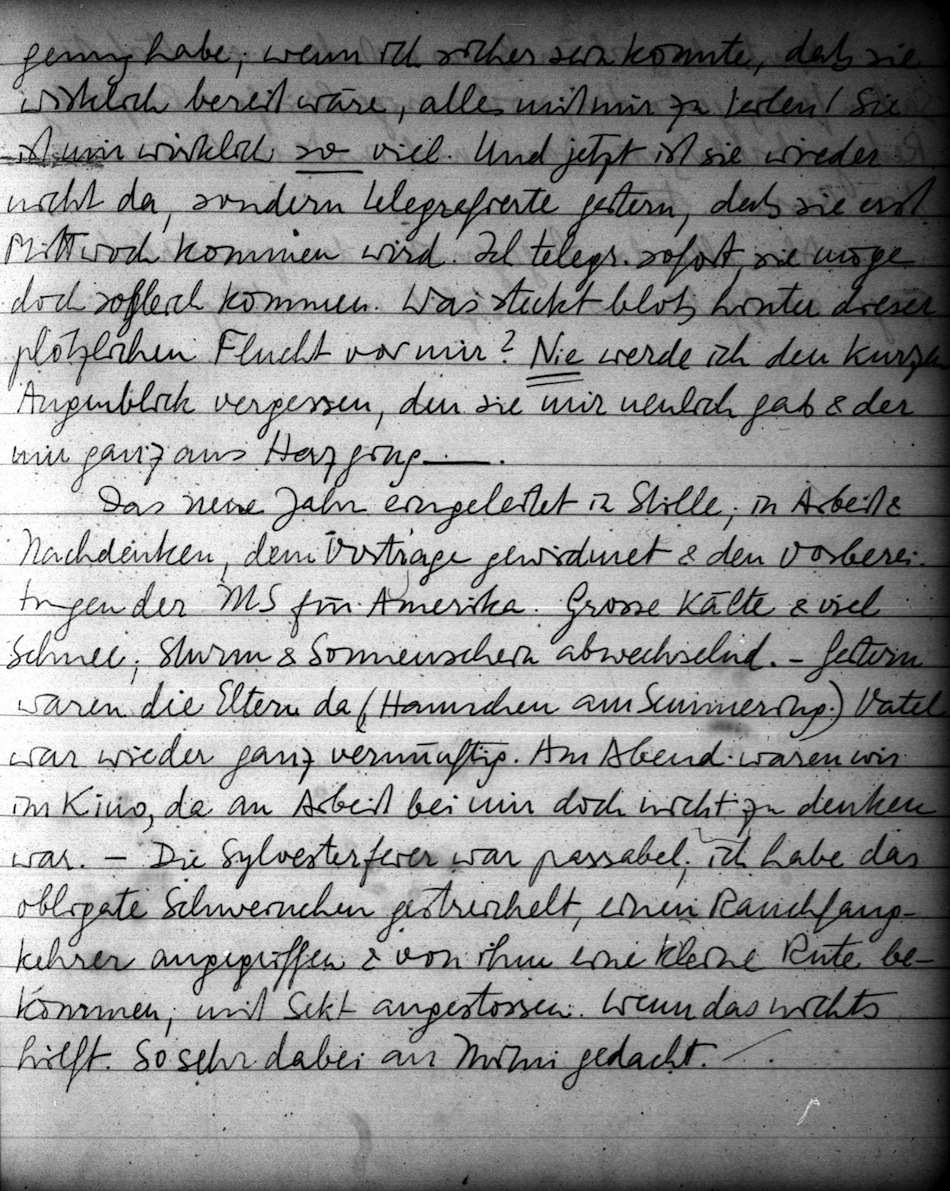 genug habe; wenn ich sicher sein könnte, dass sie
wirklich bereit wäre, alles mit mir zu teilen! Sie
ist mir wirklich so viel. Und jetzt ist sie wieder
nicht da, sondern telegrafierte gestern, dass sie erst
Mittwoch kommen wird. Ich telegr. sofort, sie möge
doch sogleich kommen. Was steckt bloss hinter dieser
plötzlichen Flucht vor mir? Nie werde ich den kurzen
Augenblick vergessen, den sie mir neulich gab & der
mir ganz ans Herz ging —.
Das neue Jahr eingeleitet in Stille, in Arbeit &
Nachdenken, dem Vortrage gewidmet & den Vorberei-
tungen der MS für Amerika. Grosse Kälte & viel
Schnee; Sturm & Sonnenschein abwechselnd. – Gestern
waren die Eltern da (Hannchen am Semmering.) Vatel
war wieder ganz vernünftig. Am Abend waren wir
im Kino, da an Arbeit bei mir doch nicht zu denken
war. – Die Sylvesterfeier war passabel; ich habe das
obligate Schweinchen gestreichelt, einen Rauchfang-
kehrer angegriffen & von ihm eine kleine Rute be-
kommen; mit Sekt angestossen. Wenn das nichts
hilft. So sehr dabei an Mimi gedacht. –.